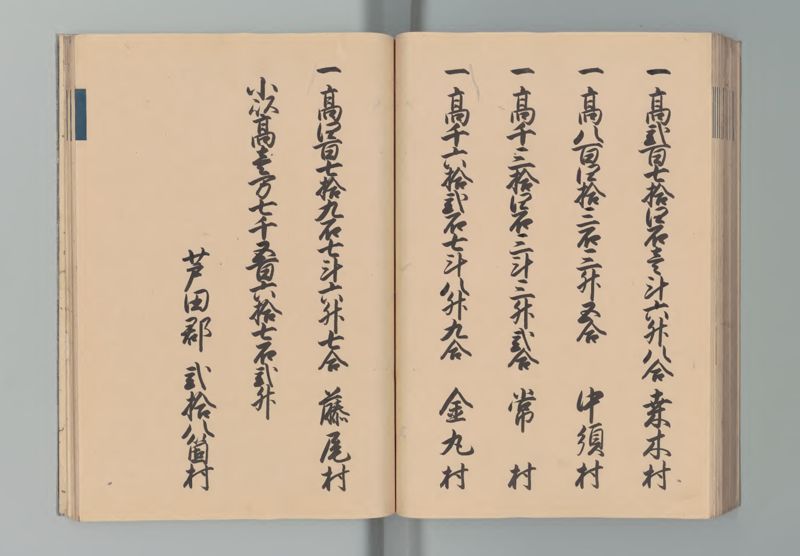 一高弐百七拾四石壱斗六升八合 桒木村
一高八百四拾二石三升五合 中須村
一高千三拾四石二斗三升弐合 常村
一高千六拾弐石七斗八升九合 金丸村
一高四百七拾九石七斗六升七合 藤尾村
小以高壱万七千五百六拾七石弐升
芦田郡 弐拾八箇村